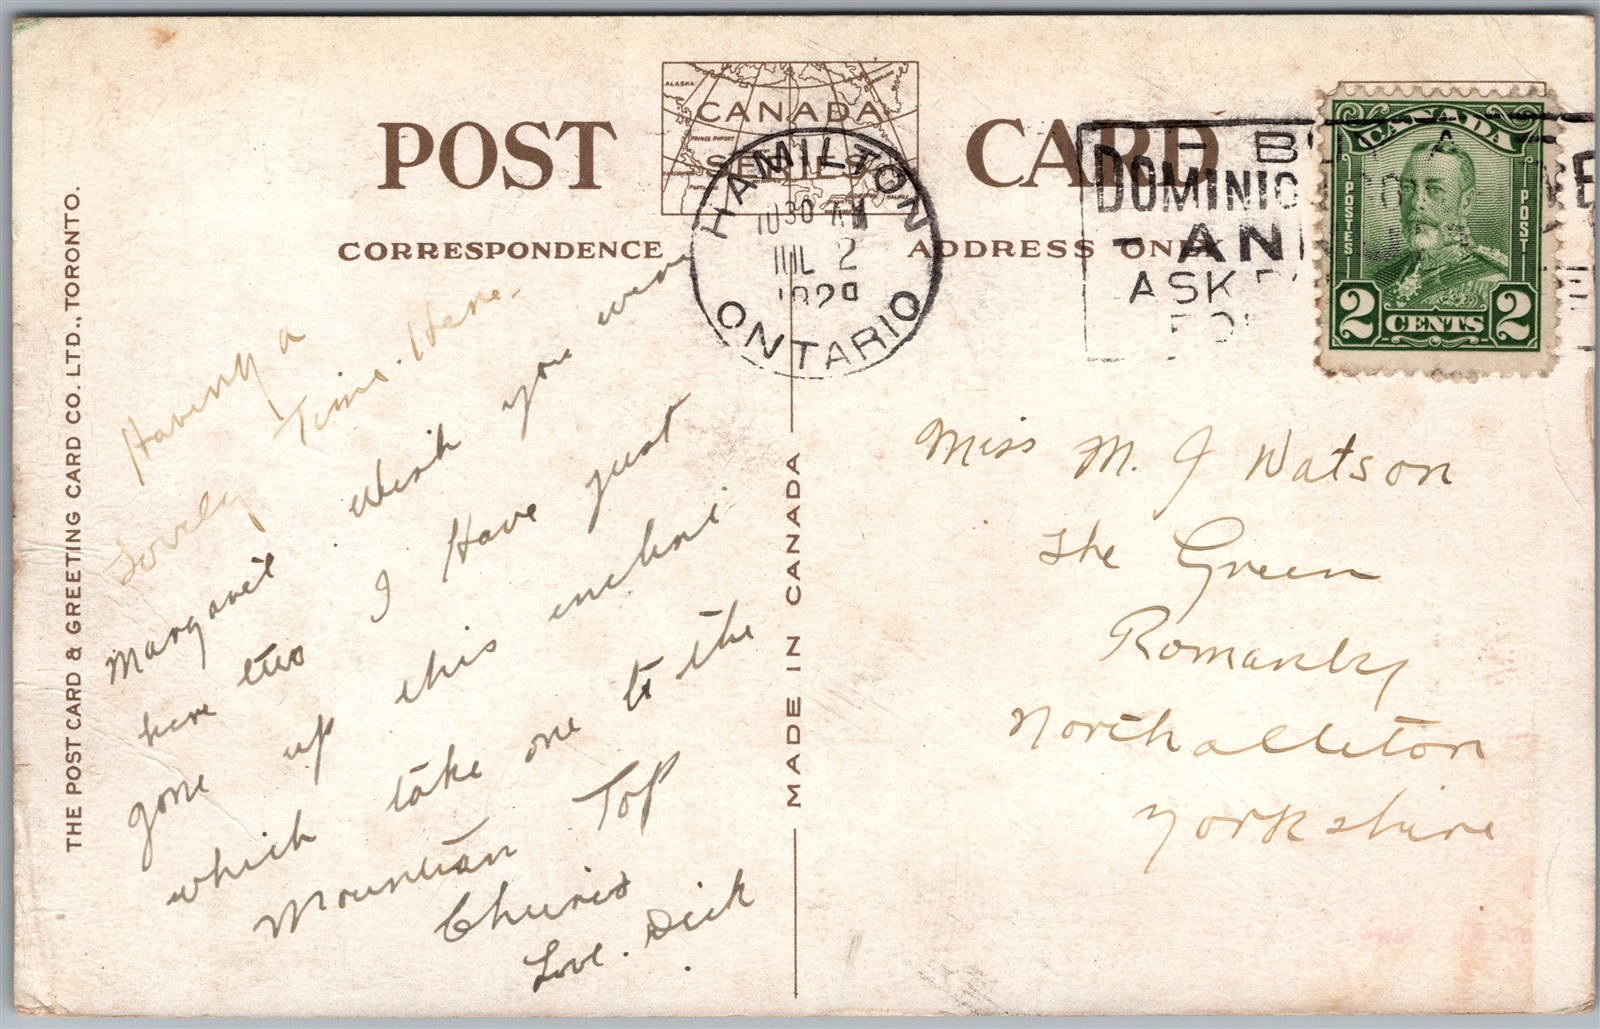 POST CARD
CANADA
SERIES
ALASKA
CORRESPONDENCE
ADDRESS ONLY
HAMILTON
10 30 AM
JUL 2
ONTARIO
BUY A
DOMINIO
AN
ASK
CANADA
POSTES
POST
2 CENTS 2
THE POST CARD & GREETING CARD CO. LTD., TORONTO.
MADE IN CANADA
Having a
Lovely Time. Here.
Margaret. Wish you were
here two I Have just
gone up this inclini
which take one to the
Mountian Top
Cheerio
Love. Dick
Miss M. J Watson
The Green
Romanby
Northallerton
Yorkshire